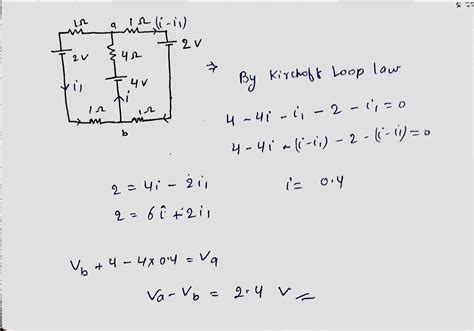 1Ω a 1Ω (i-i₁)
2V 4Ω 2V
i₁ 4V
i
1Ω 1Ω
b
⇒ By Kirchoft Loop law
4 - 4i - i₁ - 2 - i₁ = 0
4 - 4i - (i-i₁) - 2 - (i-i₁) = 0
2 = 4i - 2i₁ i = 0.4
2 = 6i + 2i₁
V_b + 4 - 4×0.4 = V_a
V_a - V_b = 2.4 V